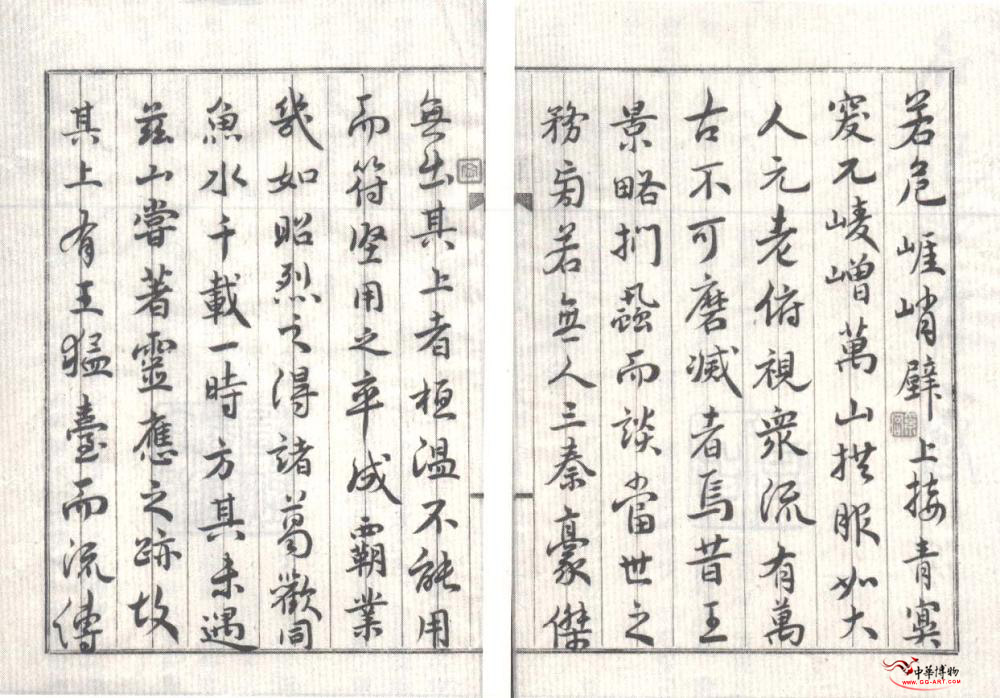 若危崕峭壁上接青冥
窔兀崚嶒萬山拱服如大
人元老俯視衆流有萬
古不可磨滅者焉昔王
景略捫蝨而談當世之
務旁若無人三秦豪傑
無出其上者桓溫不能用
而符堅用之卒成覇業
幾如昭烈之得諸葛歡同
魚水千載一時方其未遇
茲山嘗著靈應之跡故
其上有王猛臺而流傳
中華博物
www.gg-art.com